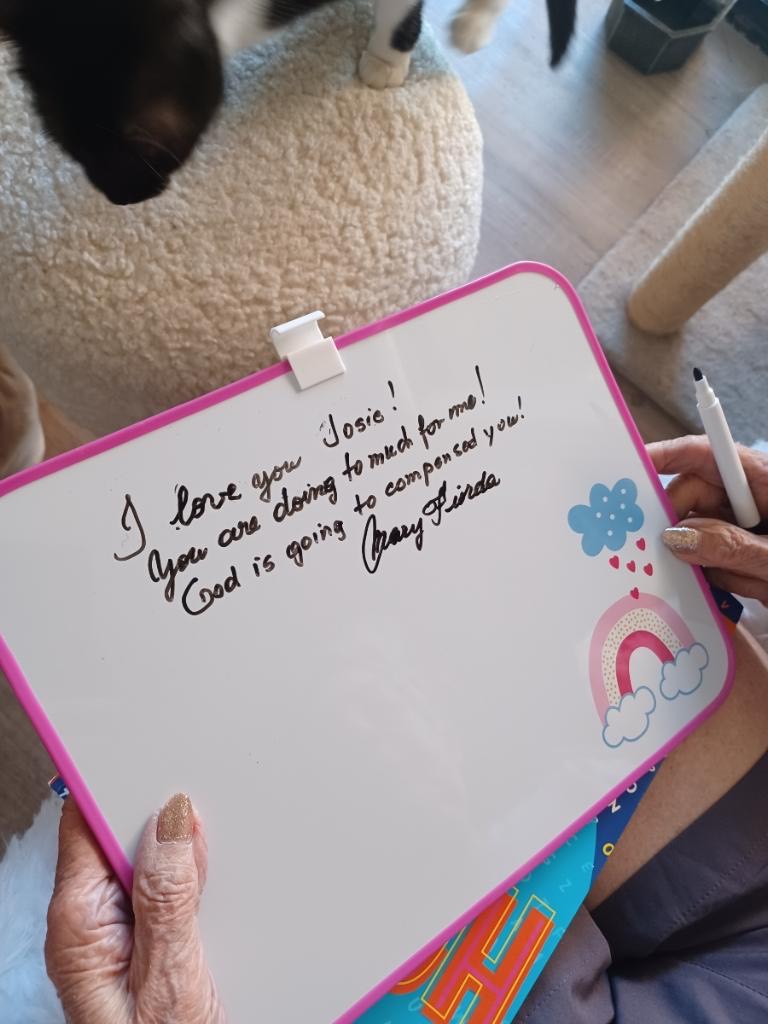 I love you Josie!
You are doing to much for me!
God is going to compensed you!
Mary Fionda
H